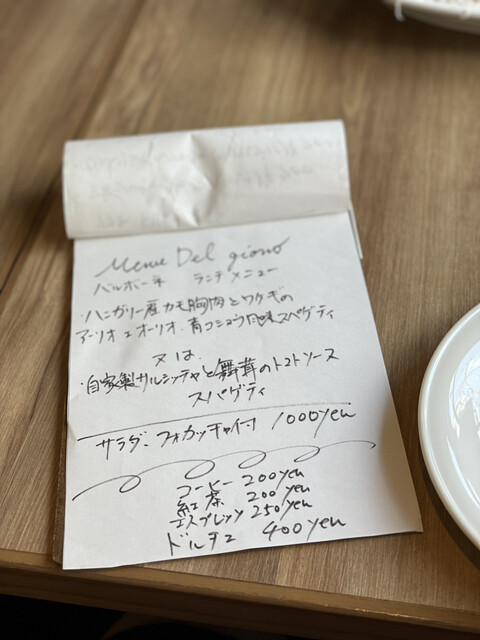 Menu Del giorno
バルボーネ ランチメニュー
・ハンガリー産カモ胸肉とワケギの
アーリオエオーリオ、青コショウ風味スパゲティ
又は、
・自家製サルシッチャと舞茸のトマトソース
スパゲティ
サラダ、フォカッチャ付 1000yen
コーヒー 200yen
紅茶 200yen
エスプレッソ 250yen
ドルチェ 400yen